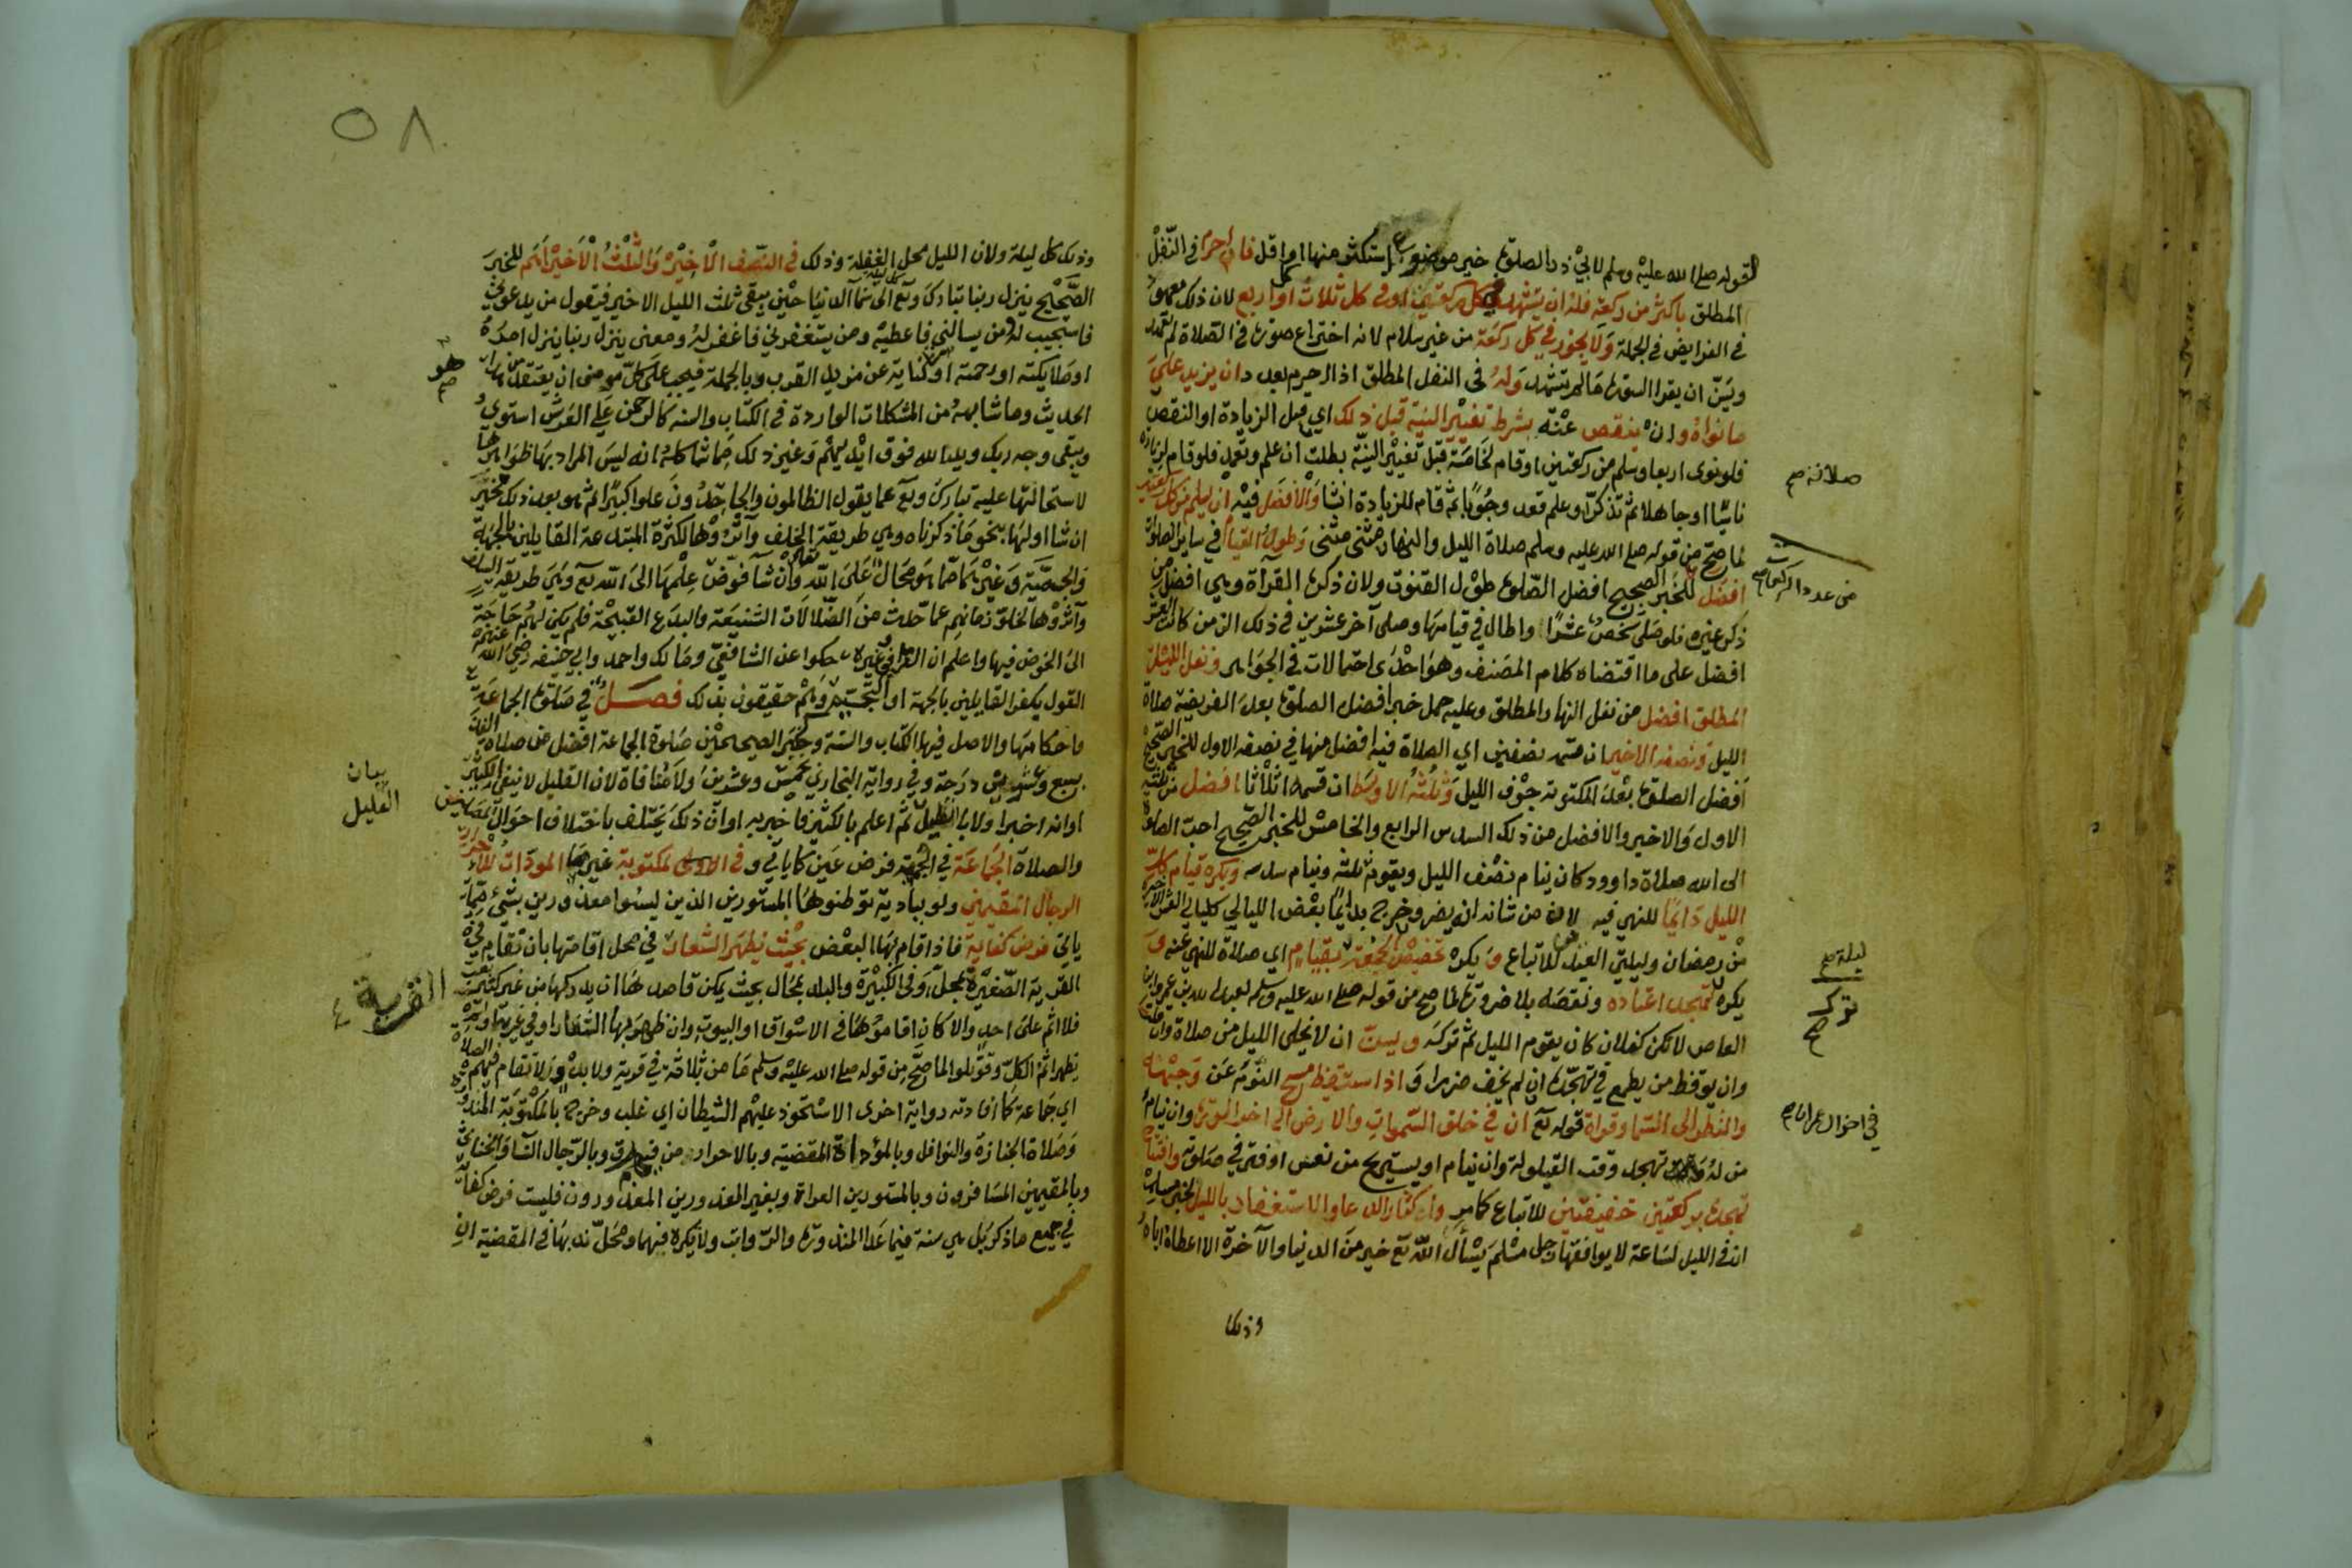 لقوله صلى الله عليه وسلم لابي ذر الصلوة خير موضوع استكثر منها او اقل فان احرم في النفل
المطلق باكثر من ركعة فله ان يتشهد في كل ركعتين او في كل ثلاث او اربع لان ذلك معهود
في الفرايض في الجملة ولا يجوز في كل ركعة من غير سلام لانه اختراع صورة في الصلاة لم تعهد
ويسن ان يقرا السورة ما لم يتشهد وله في النفل المطلق اذا احرم بعدد ان يزيد على
ما نواه وان ينقص عنه بشرط تغيير النية قبل ذلك اي قبل الزيادة او النقص
فلو نوى اربعا وسلم من ركعتين او قام لخامسة قبل تغيير النية بطلت ان علم وتعمد فلو قام لزيادة
ناسيا او جاهلا ثم تذكر او علم قعد وجوبا ثم قام للزيادة ان شا والافضل فيه ان يسلم من كل ركعتين
لما صح من قوله صلى الله عليه وسلم صلاة الليل والنهار مثنى مثنى وطول القيام في ساير الصلوة
افضل للخبر الصحيح افضل الصلوة طول القنوت ولان ذكره القرآة وهي افضل من
ذكر غيره فلو صلى شخص عشرا واطال في قيامها وصلى آخر عشرين في ذلك الزمن كانت العشر
افضل على ما اقتضاه كلام المصنف وهو احدى احتمالات في الجواهر ونفل الليل
المطلق افضل من نفل النهار المطلق وعليه حمل خبر افضل الصلوة بعد الفريضة صلاة
الليل ونصفه الاخير ان قسمه نصفين اي الصلاة فيه افضل منها في نصفه الاول للخبر الصحيح
افضل الصلوة بعد المكتوبة جوف الليل وثلثه الاوسط ان قسمه اثلاثا افضل من ثلثيه
الاول والاخير والافضل من ذلك السدس الرابع والخامس للخبر الصحيح احب الصلوة
الى الله صلاة داوود كان ينام نصف الليل ويقوم ثلثه وينام سدسه ويكره قيام كل
الليل دايما للنهي فيه لان من شانه ان يضر وخرج بدايما بعض الليالي كليالي العشر الاخير
من رمضان وليلتي العيد للاتباع ويكره تخصيص ليلة الجمعة بقيام اي صلاة للنهي عنه و
يكره لتهجد اعتاده ونقصه بلا ضرورة لما صح من قوله صلى الله عليه وسلم لعبد الله بن عمرو بن
العاص لا تكن كفلان كان يقوم الليل ثم تركه ويسن ان لا يخلي الليل من صلاة وان قلت
وان يوقظ من يطمع في تهجده ان لم يخف ضررا و اذا استيقظ مسح النوم عن وجهه
والنظر الى السما وقراة قوله تع ان في خلق السموات والارض الى اخر السورة وان ينام
من له تهجد وقت القيلولة وان ينام او يستريح من نعس او فتر في صلوته وافتتاح
تهجده بركعتين خفيفتين للاتباع كامر واكثار الدعا والاستغفار بالليل لخبر مسلم
ان في الليل لساعة لا يوافقها رجل مسلم يسأل الله تع خير من الدنيا والآخرة الا اعطاه اياه
وذلك
صلاته صح
من عدد الركعات صح
ليلة صح
ترك
صح
في احوال صح
٥٨
وذلك كل ليلة ولان الليل محل الغفلة وذلك في النصف الاخير والثلث الاخير اهم للخبر
الصحيح ينزل ربنا تبارك وتع كل ليلة الى سما الدنيا حين يبقى ثلث الليل الاخير فيقول من يدعوني
فاستجيب له ومن يسالني فاعطيه ومن يستغفرني فاغفر له ومعنى ينزل ربنا ينزل امره
او ملايكته او رحمته او كناية عن مزيد القرب وبالجملة فيجب على كل مومن ان يعتقد من هذا
الحديث وما شابهه من المشكلات الواردة في الكتاب والسنة كالرحمن على العرش استوى
ويبقى وجه ربك ويد الله فوق ايديهم وغير ذلك مما شاكله انه ليس المراد بها ظواهرها
لاستحالتها عليه تبارك وتع عما يقول الظالمون والجاحدون علوا كبيرا ثم هو بعد ذلك مخير
ان شا اولها بنحو ما ذكرناه وهي طريقة الخلف وآثروها لكثرة المبتدعة القايلين بالجهة
والجسمية وغيرهما مما هو محال على الله تعالى وان شا فوض علمها الى الله تع وهي طريقة السلف
وآثروها لخلو زمانهم عما حدث من الضلالات الشنيعة والبدع القبيحة فلم يكن لهم حاجة
الى الخوض فيها واعلم ان القرافي وغيره حكوا عن الشافعي ومالك واحمد وابي حنيفة رضي الله عنهم
القول بكفر القايلين بالجهة او التجسيم وهم حقيقون بذلك فصل في صلوة الجماعة
واحكامها والاصل فيها الكتاب والسنة وخبر الصحيحين صلوة الجماعة افضل من صلاة الفذ
بسبع وعشرين درجة وفي رواية البخاري بخمس وعشرين ولا منافاة لان القليل لا ينفي الكثير
او انه اخبر اولا بالقليل ثم اعلم بالكثير فاخبر به او ان ذلك يختلف باختلاف احوال المصلين
والصلاة الجماعة في الجمعة فرض عين كما ياتي وفي المكتوبة غيرها المودات للاحرار
الرجال المقيمين ولو ببادية توطنوها المستورين الذين ليسوا معذورين بشئ مما
ياتي فرض كفاية فاذا اقام بها البعض بحيث يظهر الشعار في محل اقامتها بان تقام في
القرية الصغيرة بمحل وفي الكبيرة والبلد بمحال بحيث يمكن قاصدها ان يدركها من غير كثير تعب
فلا اثم على احد والا كان اقاموها في الاسواق او البيوت وان ظهر بها الشعار او في غيرها ولم
يظهر اثم الكل وقوتلوا لما صح من قوله صلى الله عليه وسلم ما من ثلاثة في قرية ولا بدو لا تقام فيهم الصلاة
اي جماعة كما افادته رواية اخرى الا استحوذ عليهم الشيطان اي غلب وخرج بالمكتوبة المنذورة
وصلاة الجنازة والنوافل وبالمؤداة المقضية وبالاحرار من فيه رق وبالرجال النسا والخناثى
وبالمقيمين المسافرون وبالمستورين العراة وبغير المعذورين المعذورون فليست فرض كفاية
في جميع ما ذكر بل هي سنة فيما عدا المنذورة والرواتب ولا يكره فيهما ومحل ندبها في المقضية ان
هو
صح
بيان
القليل
القرية